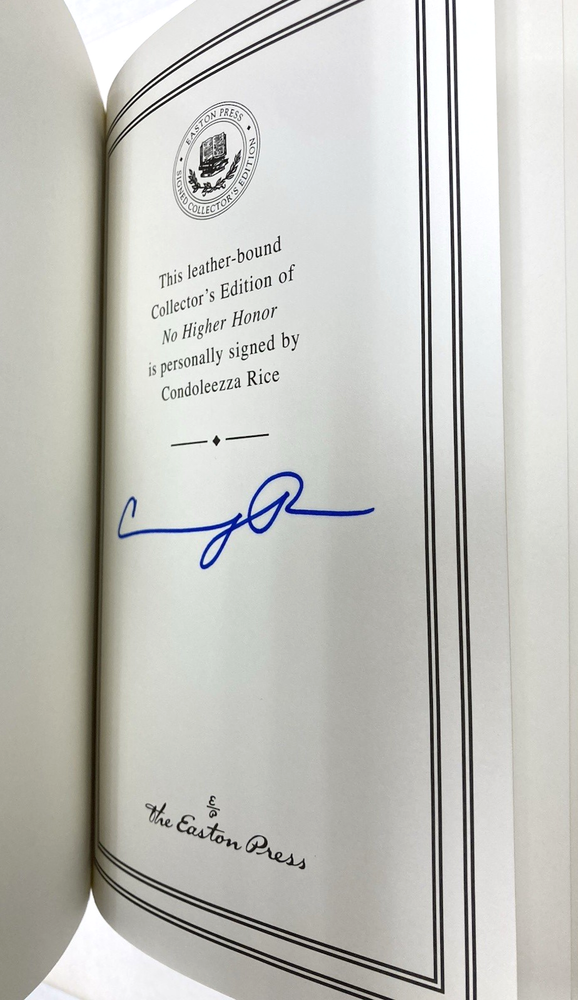 EASTON PRESS
SIGNED COLLECTOR'S EDITION
This leather-bound
Collector's Edition of
No Higher Honor
is personally signed by
Condoleezza Rice
E
P
the Easton Press